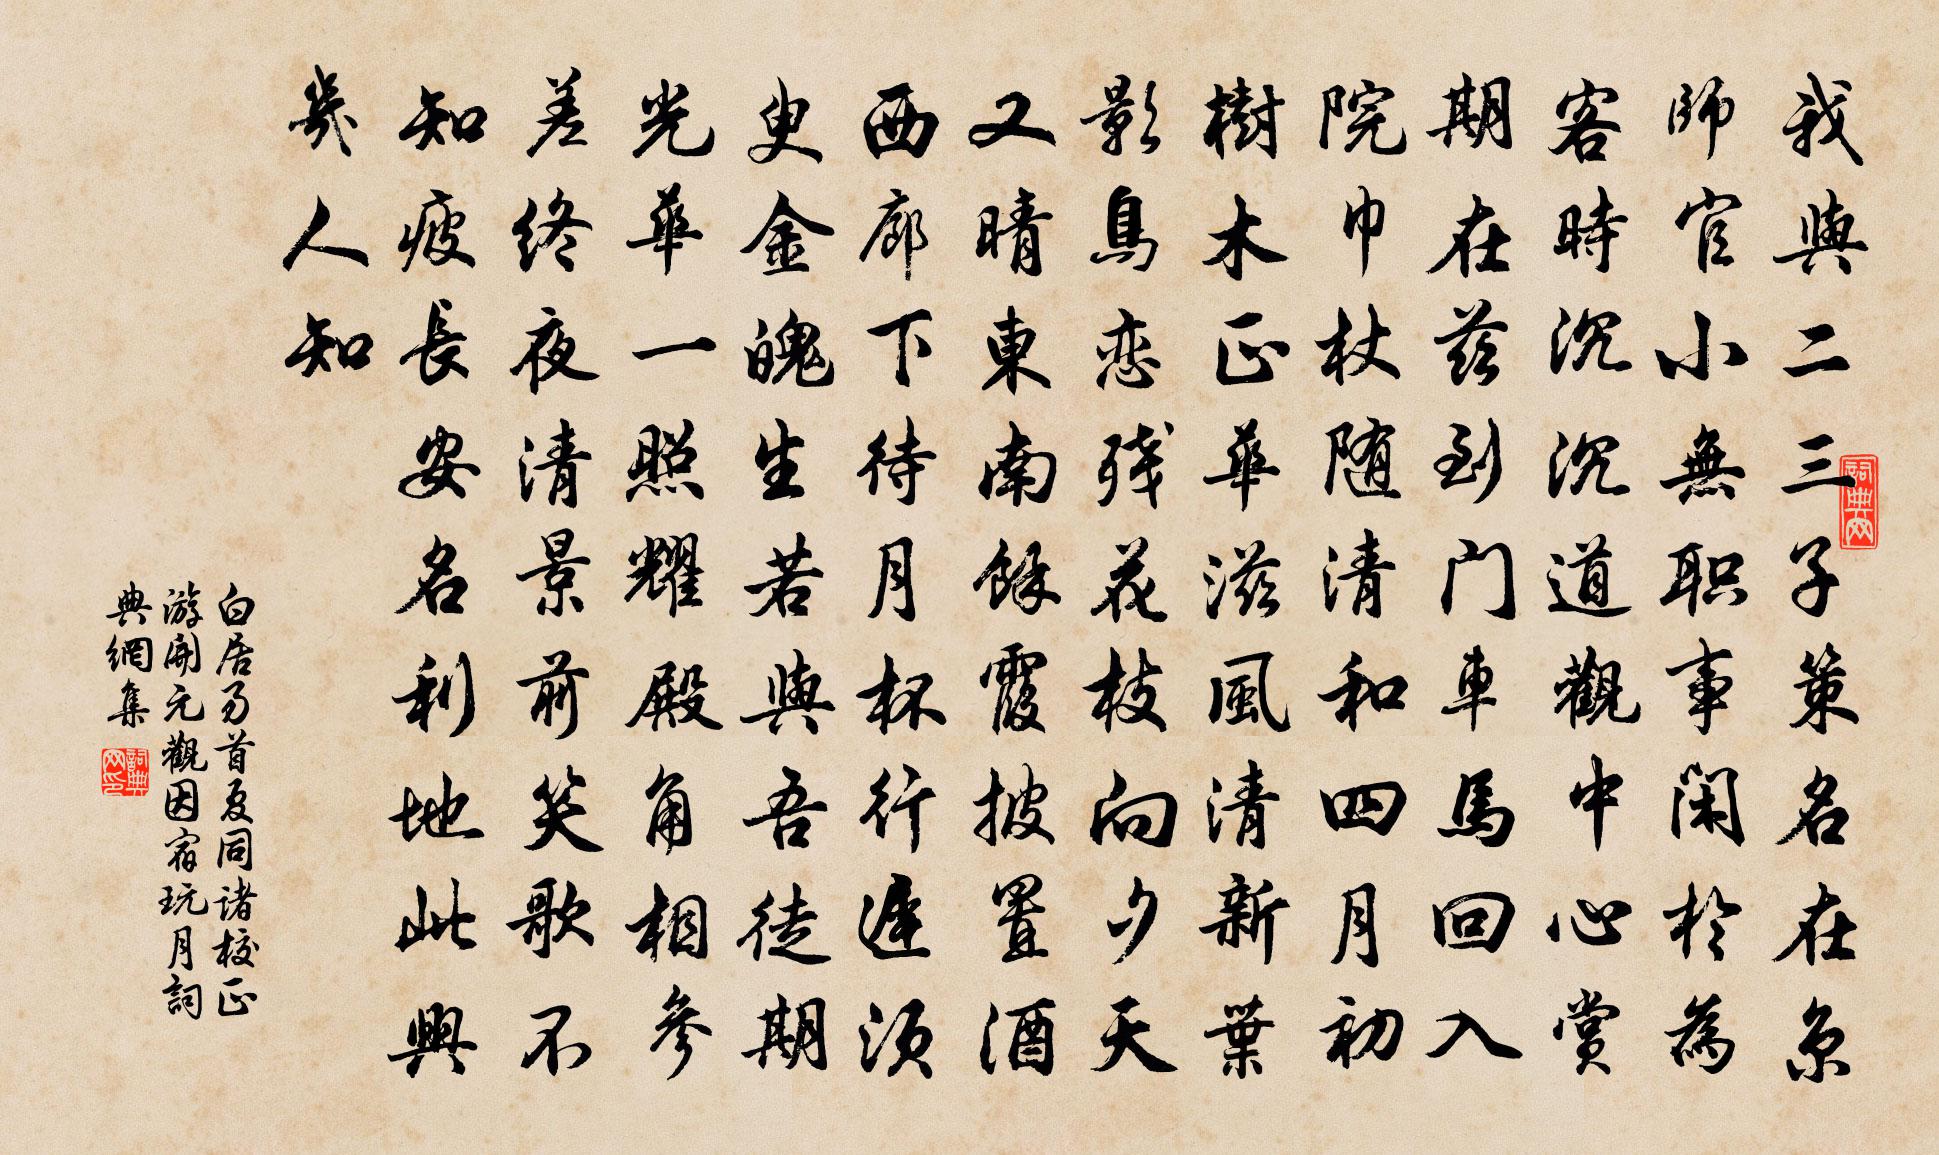 我與二三子策名在京
師官小無职事閑於為
客時沉沉道觀中心賞
期在兹到门車馬回入
院巾杖随清和四月初
樹木正華滋風清新葉
影鳥恋残花枝向夕天
又晴東南餘霞披置酒
西廊下待月杯行遲須
臾金魄生若與吾徒期
光華一照耀殿角相參
差終夜清景前笑歌不
知疲長安名利地此興
幾人知
詞典网
白居易首夏同诸校正
游開元觀因宿玩月詞
典網集
詞典网印